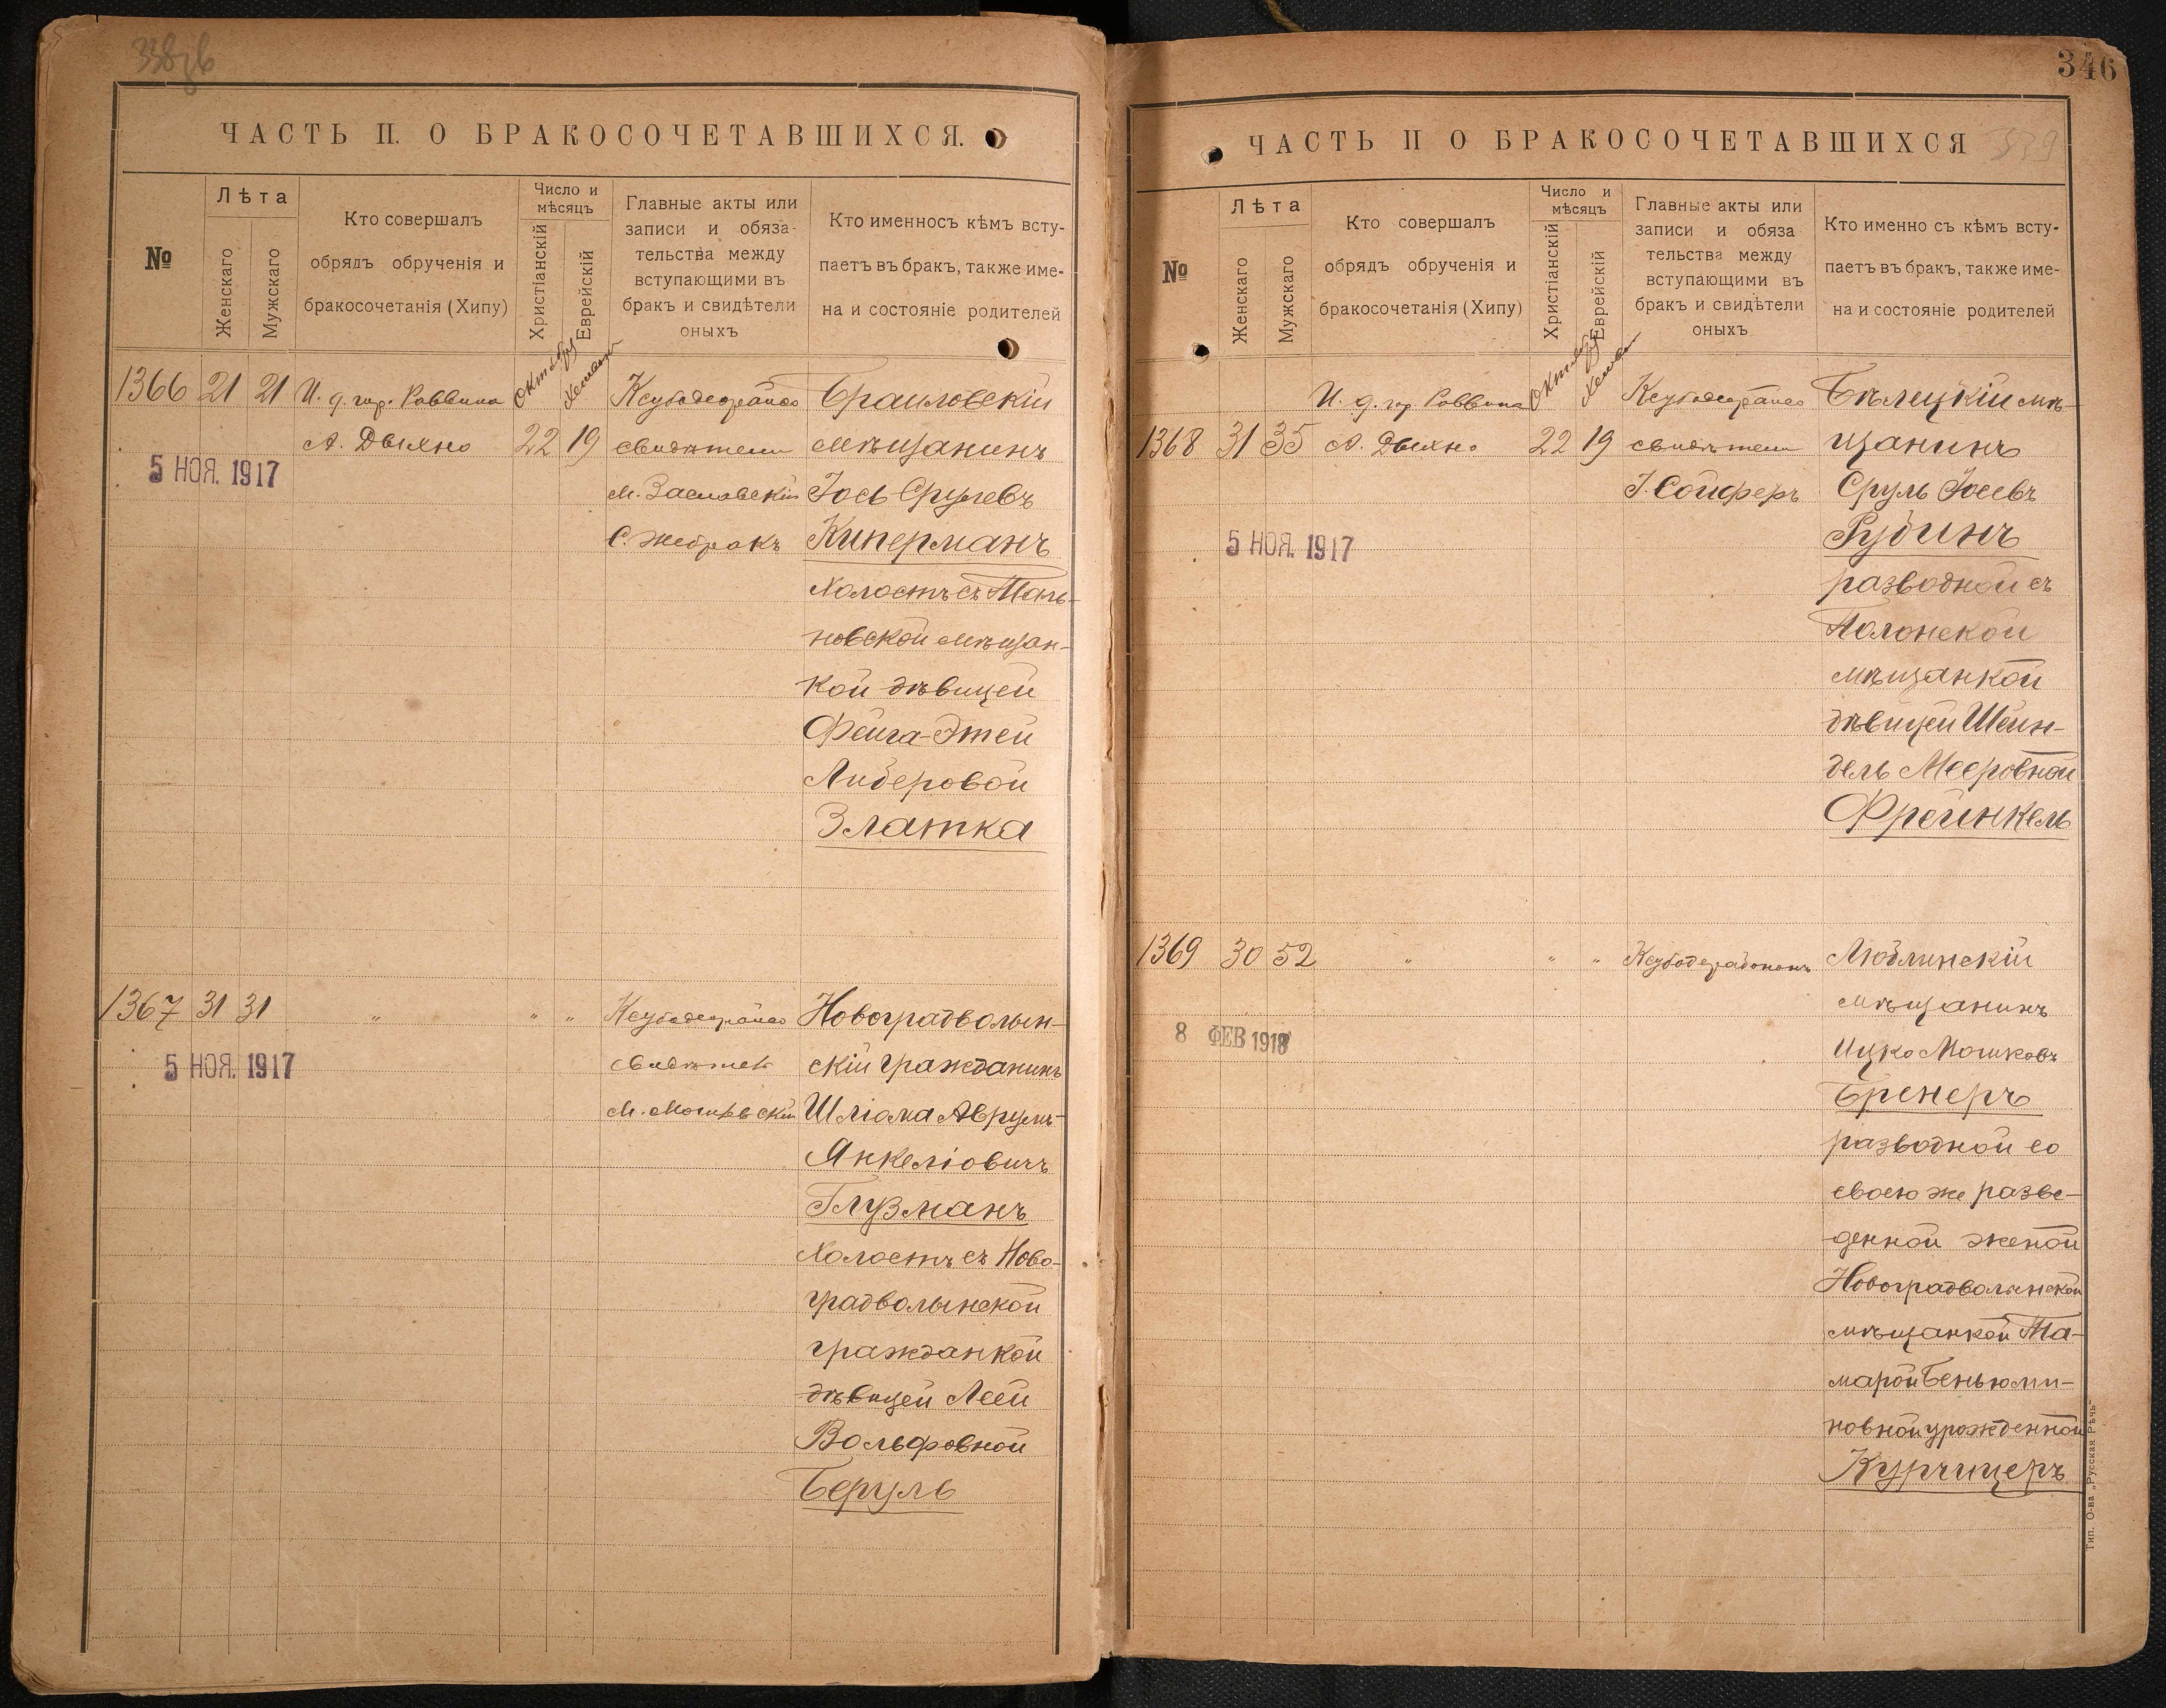 338 зв
ЧАСТЬ II. О БРАКОСОЧЕТАВШИХСЯ.
№
Лѣта
Женскаго
Мужскаго
Кто совершалъ
обрядъ обрученія и
бракосочетанія (Хипу)
Число и
мѣсяцъ
Христіанскій
Еврейскій
Главные акты или
записи и обяза-
тельства между
вступающими въ
бракъ и свидѣтели
оныхъ
Кто именносъ кѣмъ всту-
паетъ въ бракъ, также име-
на и состояніе родителей
1366 21 21 И. д. гор. Раввина
А. Дыхно
Октября 22
Хешвана 19
5 НОЯ. 1917
свидѣтели
М. Заславскій
С. Жебракъ
Браиловскій
мѣщанинъ
Іось Срулевъ
Киперманъ
Холостъ съ Таль-
новской мѣщан-
кой дѣвицей
Фейга-Этей
Лидеровой
Златка
1367 31 31 " " "
5 НОЯ. 1917
М. Могилевскій
Новоградволын-
скій гражданинъ
Шліома Аврумъ-
Янкеліовичъ
Глузманъ
Холостъ съ Ново-
градволынской
гражданкой
дѣвицей Леей
Вольфовной
Беруль
346
339
ЧАСТЬ II О БРАКОСОЧЕТАВШИХСЯ
№
Лѣта
Женскаго
Мужскаго
Кто совершалъ
обрядъ обрученія и
бракосочетанія (Хипу)
Число и
мѣсяцъ
Христіанскій
Еврейскій
Главные акты или
записи и обяза
тельства между
вступающими въ
бракъ и свидѣтели
оныхъ
Кто именно съ кѣмъ всту-
паетъ въ бракъ, также име-
на и состояніе родителей
1368 31 35
И. д. гор Раввина
А. Дыхно
Октября 22
Хешвана 19
5 НОЯ. 1917
свидѣтели
І. Сойферъ
Бѣлецкій мѣ-
щанинъ
Сруль Іосевъ
Рубинъ
разводной съ
Полонской
мѣщанкой
дѣвицей Шейн-
дель Мееровной
Фрейнкель
1369 30 52 " " "
8 ФЕВ 1918
Люблинскій
мѣщанинъ
Ицко Мошковъ
Бренеръ
разводной со
своею же разве-
денной женой
Новоградволынской
мѣщанкой Та-
марой Беньюми-
новной урожденной
Курчицеръ
Тип. О-ва „Русская Рѣчь“